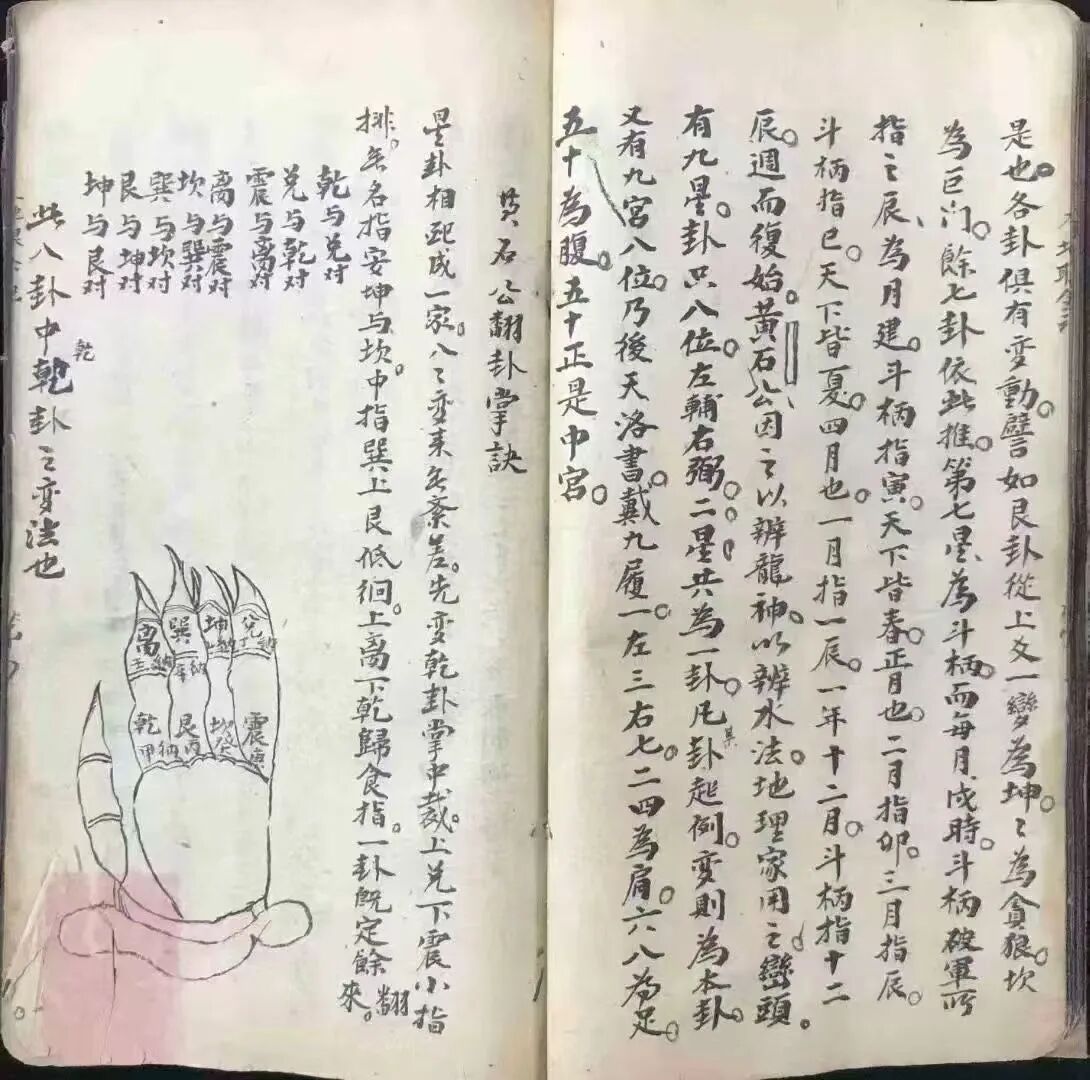 是也。各卦俱有变動。譬如艮卦從上爻一變為坤。〻為貪狼。坎
為巨门。餘七卦依此推。第七星為斗柄。而每月戌時。斗柄破軍所
指之辰、為月建。斗柄指寅。天下皆春。正月也。二月指卯。三月指辰。
斗柄指巳。天下皆夏。四月也。一月指一辰。一年十二月。斗柄指十二
辰。週而復始。黃石公因之以辨龍神。以辨水法。地理家用之。巒頭。
有九星。卦只八位。左輔右弼。二星共為一卦。凡某卦起例。变則為本卦。
又有九宮八位。乃後天洛書。戴九履一。左三右七。二四為肩。六八為足。
五十為腹。五十正是中宮。
黃石公翻卦掌訣
星卦相配成一家。八〻变来无紊差。先变乾卦掌中裁。上兑下震小指
排。无名指安坤与坎。中指巽上艮低徊。上离下乾歸食指。一卦既定餘
翻來。
乾与兑对
兑与乾对
震与离对
离与震对
坎与巽对
巽与坎对
艮与坤对
坤与艮对
此八卦中乾卦之变法也
乾
兑
坤
巽
离
震
坎
艮
乾